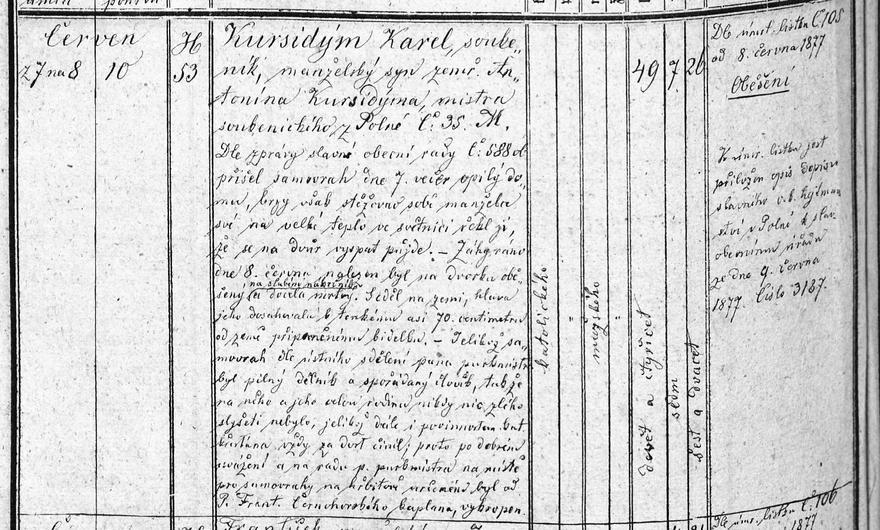 Červen
z 7 na 8
10
H
53
Kursidým Karel, soube-
ník, manželský syn zemř. An-
tonína Kursidýma, mistra
soubenického, z Polné Č: 35. M.
Dle zprávy slavné obecní rady Č: 588 d
přišel samovrah dne 7. večer opilý do-
mu, brzy však stěžovav sobě manželce
své na velké teplo ve světnici řekl jí,
že se na dvůr vyspat půjde. – Záhy ráno
dne 8. června nalezen byl na dvorku obě-
na slabém nákrčníku
šený a docela mrtvý. Seděl na zemi, hlava
jeho dosahovala k tenkému asi 70. centimetrů
od země připevněnému bidelku. – Jelikož sa-
movrah dle ústního sdělení pana purkmistr
byl pilný dělník a spořádaný člověk, tak že
na něho a jeho celou rodinu nikdy nic zlého
slyšeti nebylo, jelikož dále i povinnostem kat
křesťana vždy za dost činil; proto po dobrém
uvážení a na radu p. purkmistra na místě
pro samovrahy na hřbitově určeném byl od
P. Frant. Černohorského, kaplana, vykropen.
katolického
"
mužského
"
49
devět a čtyřicet
7
sedm
26
šest a dvacet
Dle úmrt. lístku Č. 105
od 8. června 1877
Oběšení
K úmr. lístku jest
přiložen opis dopisu
slavného c. k. hejtman
ství v Polné k slav.
obecnímu úřadu
ze dne 9. června
1877. Číslo 3187.
František
Dle úmr. lístku Č. 106
1877